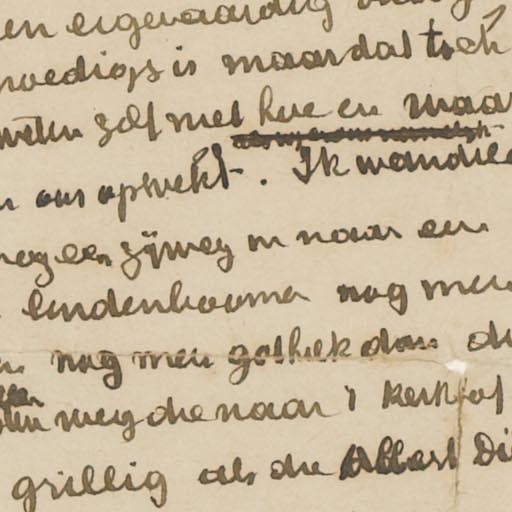 en eigenaardig
noodigs is maar dat toch
weten zelf niet hoe en waar
ons opwekt. Ik wandel
nog een zijweg in naar een
lindenboomen nog meer
nog meer gothiek dan
een weg die naar 't kerkhof
grillig als die Albert Dü